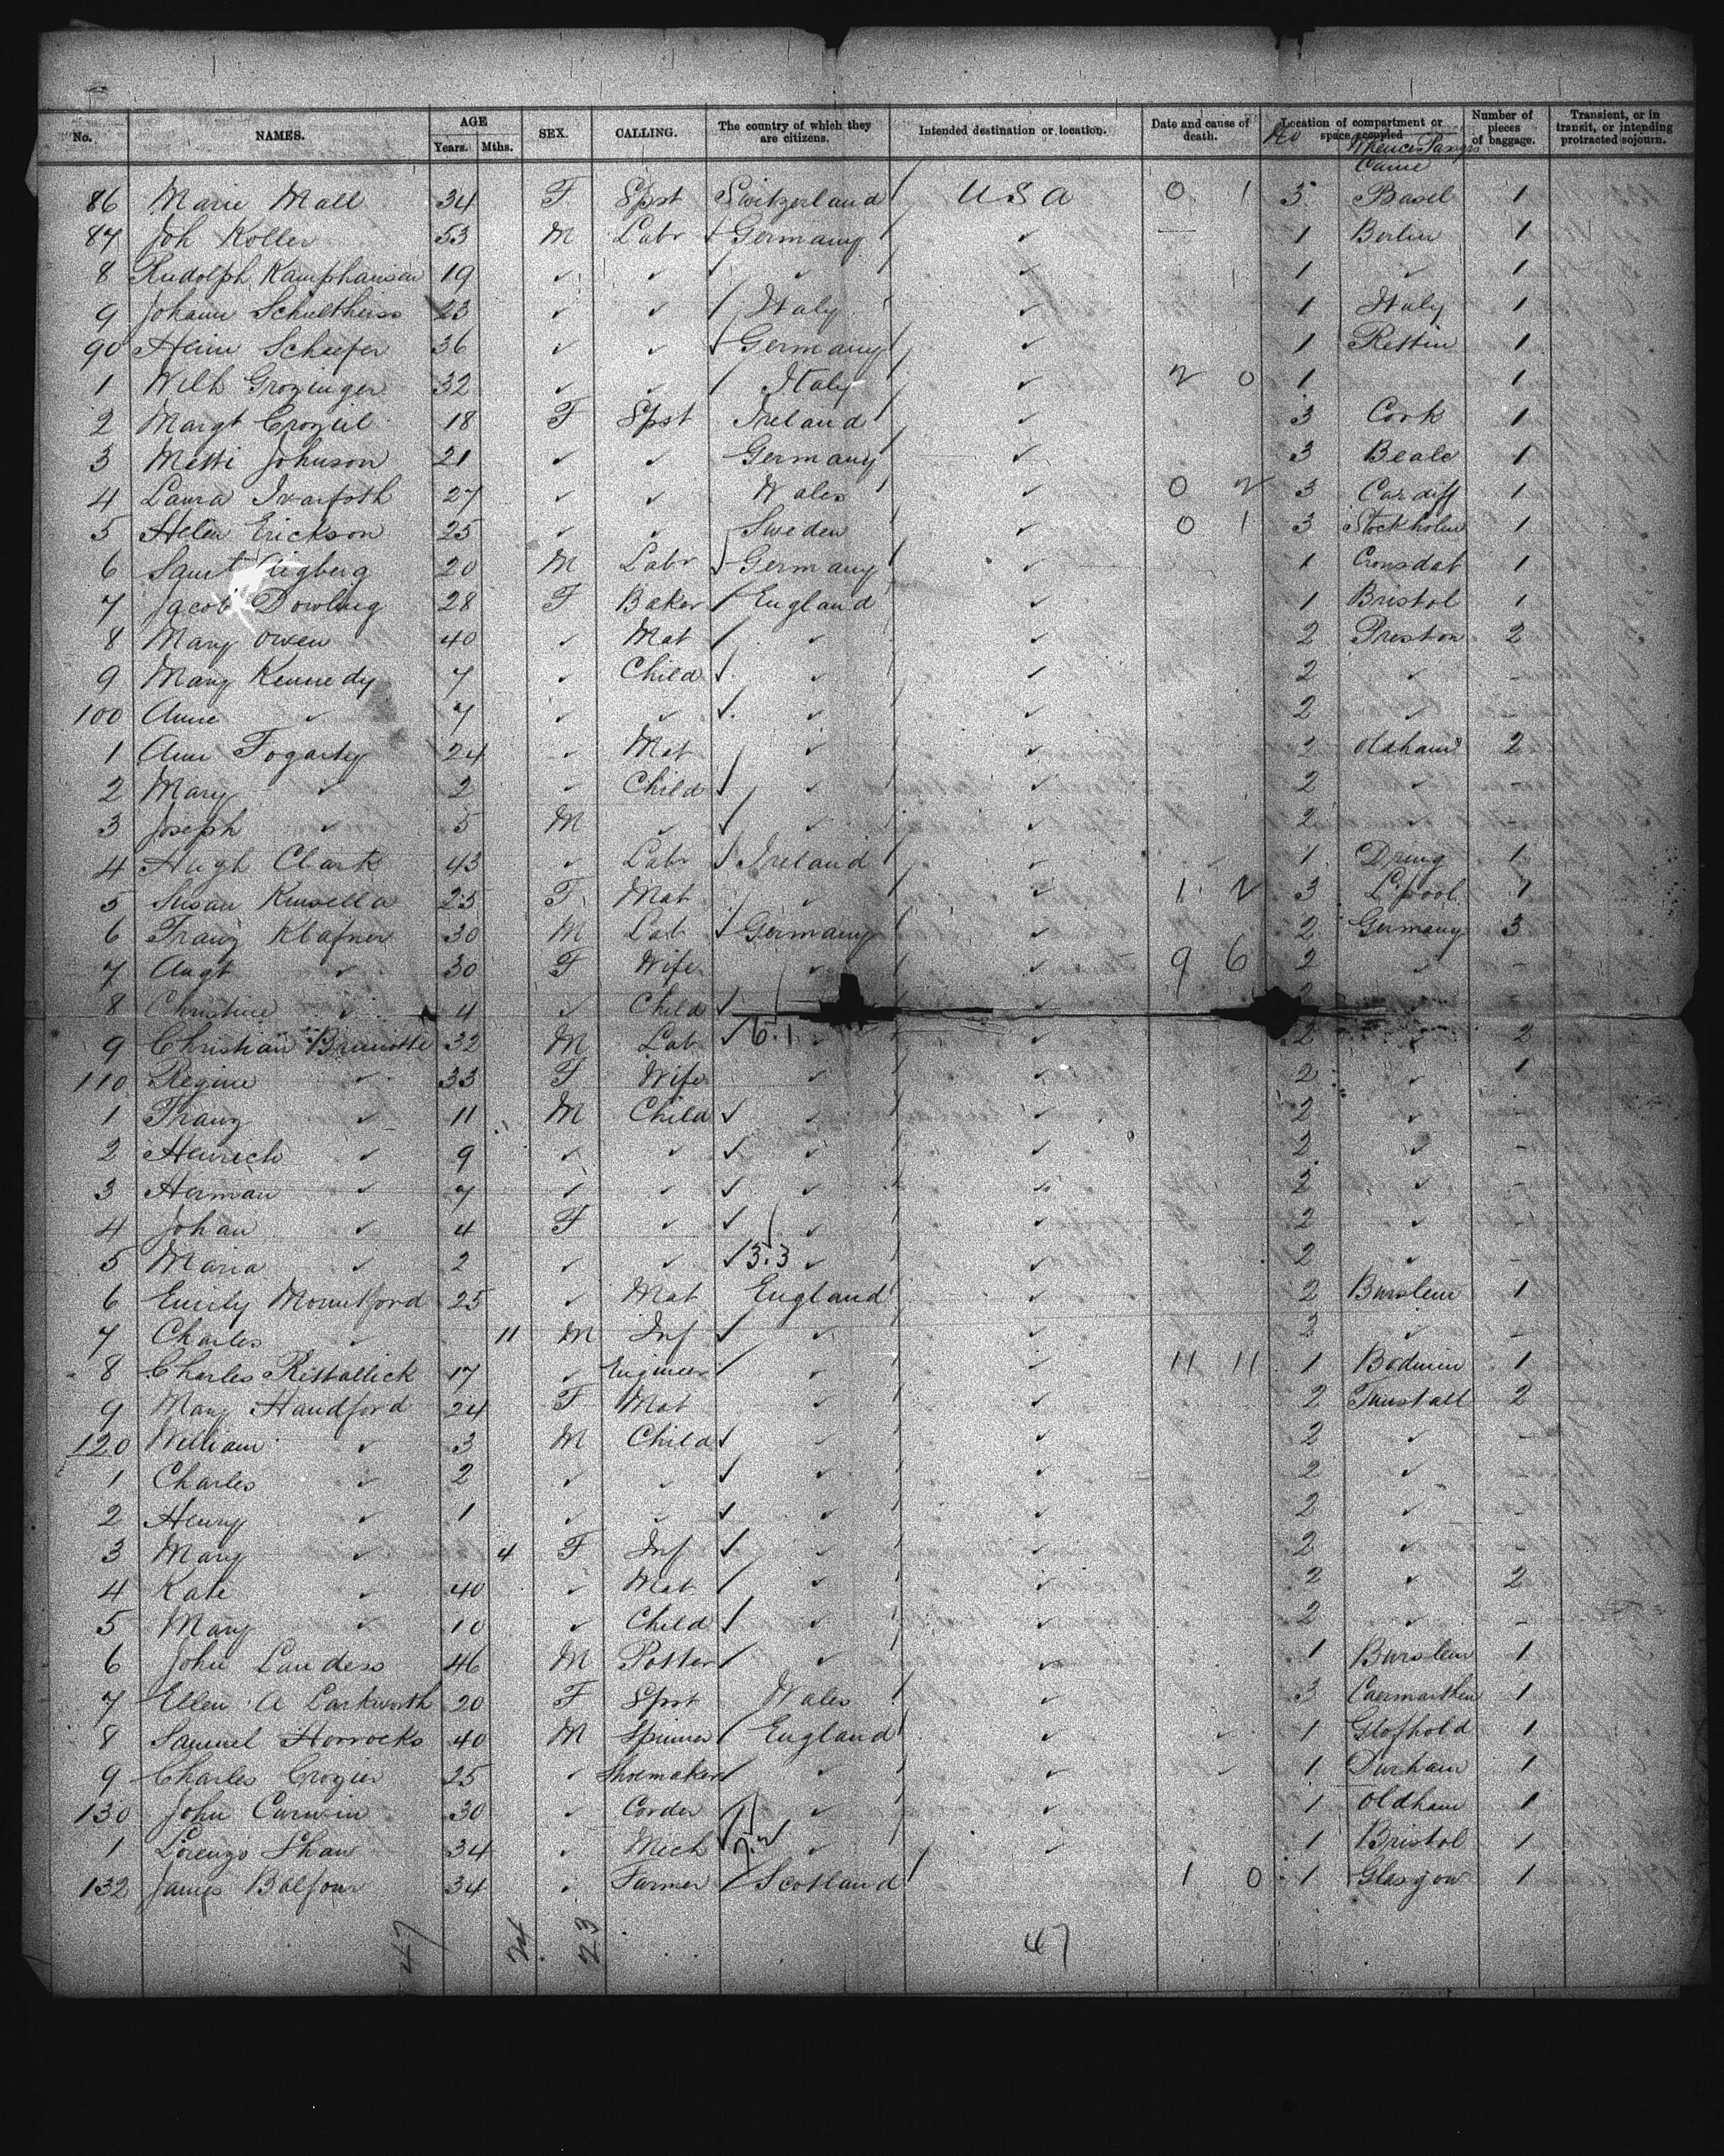 No. NAMES. AGE Years. Mths. SEX. CALLING. The country of which they are citizens. Intended destination or location. Date and cause of death. Location of compartment or space occupied Number of pieces of baggage. Transient, or in transit, or intending protracted sojourn.
No Whence Passgrs Came
86 Marie Mall 34 F Spst Switzerland USA 0 1 3 Basel 1
87 Joh Koller 53 M Labr Germany ✓ — 1 Berlin 1
8 Rudolph Kamphausen 19 ✓ ✓ ✓ ✓ 1 ✓ 1
9 Johann Schultheiss 23 ✓ ✓ Italy ✓ 1 Italy 1
90 Heinr Schiefer 36 ✓ ✓ Germany ✓ 1 Rettin 1
1 Wilh Grozinger 32 ✓ ✓ Italy ✓ 2 0 1 1
2 Margt 18 F Spst Ireland ✓ 3 Cork 1
3 Metti Johnson 21 ✓ ✓ Germany ✓ 3 Beale 1
4 Laura 27 ✓ ✓ Wales ✓ 0 2 3 Cardiff 1
5 Helen Erickson 25 ✓ ✓ Sweden ✓ 0 1 3 Stockholm 1
6 20 M Labr Germany ✓ 1 Cronsdat 1
7 Jacob Dowling 28 F Baker England ✓ 1 Bristol 1
8 Mary Owen 40 ✓ Mat ✓ ✓ 2 Preston 2
9 Mary Kennedy 7 ✓ Child ✓ ✓ 2 ✓ -
100 Anne ✓ 7 ✓ ✓ ✓ ✓ 2 ✓ -
1 Ann Fogarty 24 ✓ Mat ✓ ✓ 2 Oldham 2
2 Mary ✓ 2 ✓ Child ✓ ✓ 2 ✓ -
3 Joseph ✓ 5 M ✓ ✓ ✓ 2 ✓ -
4 Hugh Clark 43 ✓ Labr Ireland ✓ 1 Drung 1
5 Susan Kinsella 25 F Mat ✓ ✓ 1 2 3 L'pool 1
6 Franz Klafner 30 M Lab Germany ✓ 2 Germany 3
7 Augt ✓ 30 F Wife ✓ ✓ 9 6 2 ✓ -
8 Christine ✓ 4 ✓ Child ✓ ✓ 2 ✓ -
9 Christian 32 M Lab 6.1 ✓ ✓ 2 ✓ 2
110 Regine ✓ 33 F Wife ✓ ✓ 2 ✓ 1
1 Franz ✓ 11 M Child ✓ ✓ 2 ✓ -
2 Heinrich ✓ 9 ✓ ✓ ✓ ✓ 2 ✓ -
3 Herman ✓ 7 ✓ ✓ ✓ ✓ 2 ✓ -
4 Johan ✓ 4 F ✓ ✓ ✓ 2 ✓ -
5 Maria ✓ 2 ✓ ✓ 3.3 ✓ ✓ 2 ✓ -
6 Emily Mountford 25 ✓ Mat England ✓ 2 Burslem 1
7 Charles ✓ 11 M Inf ✓ ✓ 2 ✓ -
8 Charles Rettallick 17 ✓ Engineer ✓ ✓ 11 11 1 Bodmin 1
9 Mary Handford 24 F Mat ✓ ✓ 2 Tunstall 2
120 William ✓ 3 M Child ✓ ✓ 2 ✓ -
1 Charles ✓ 2 ✓ ✓ ✓ ✓ 2 ✓
2 Henry ✓ 1 ✓ ✓ ✓ ✓ 2 ✓ -
3 Mary ✓ 4 F Inf ✓ ✓ 2 ✓ -
4 Kate ✓ 40 ✓ Mat ✓ ✓ 2 ✓ 2
5 Mary ✓ 10 ✓ Child ✓ ✓ 2 ✓ -
6 John Landess 46 M Potter ✓ ✓ 1 Burslem 1
7 Ellen A Larkworth 20 F Spst Wales ✓ 3 Caermarthen 1
8 Samuel Horrocks 40 M Spinner England ✓ 1 1
9 Charles Crozier 25 ✓ Shoemaker ✓ ✓ 1 Durham 1
130 John Curwin 30 ✓ Corder ✓ ✓ 1 Oldham 1
1 Lorenzo Shaw 34 ✓ Mech ✓ ✓ 1 Bristol 1
132 James Balfour 34 ✓ Farmer Scotland 1 0 1 Glasgow 1
47 24 23 47